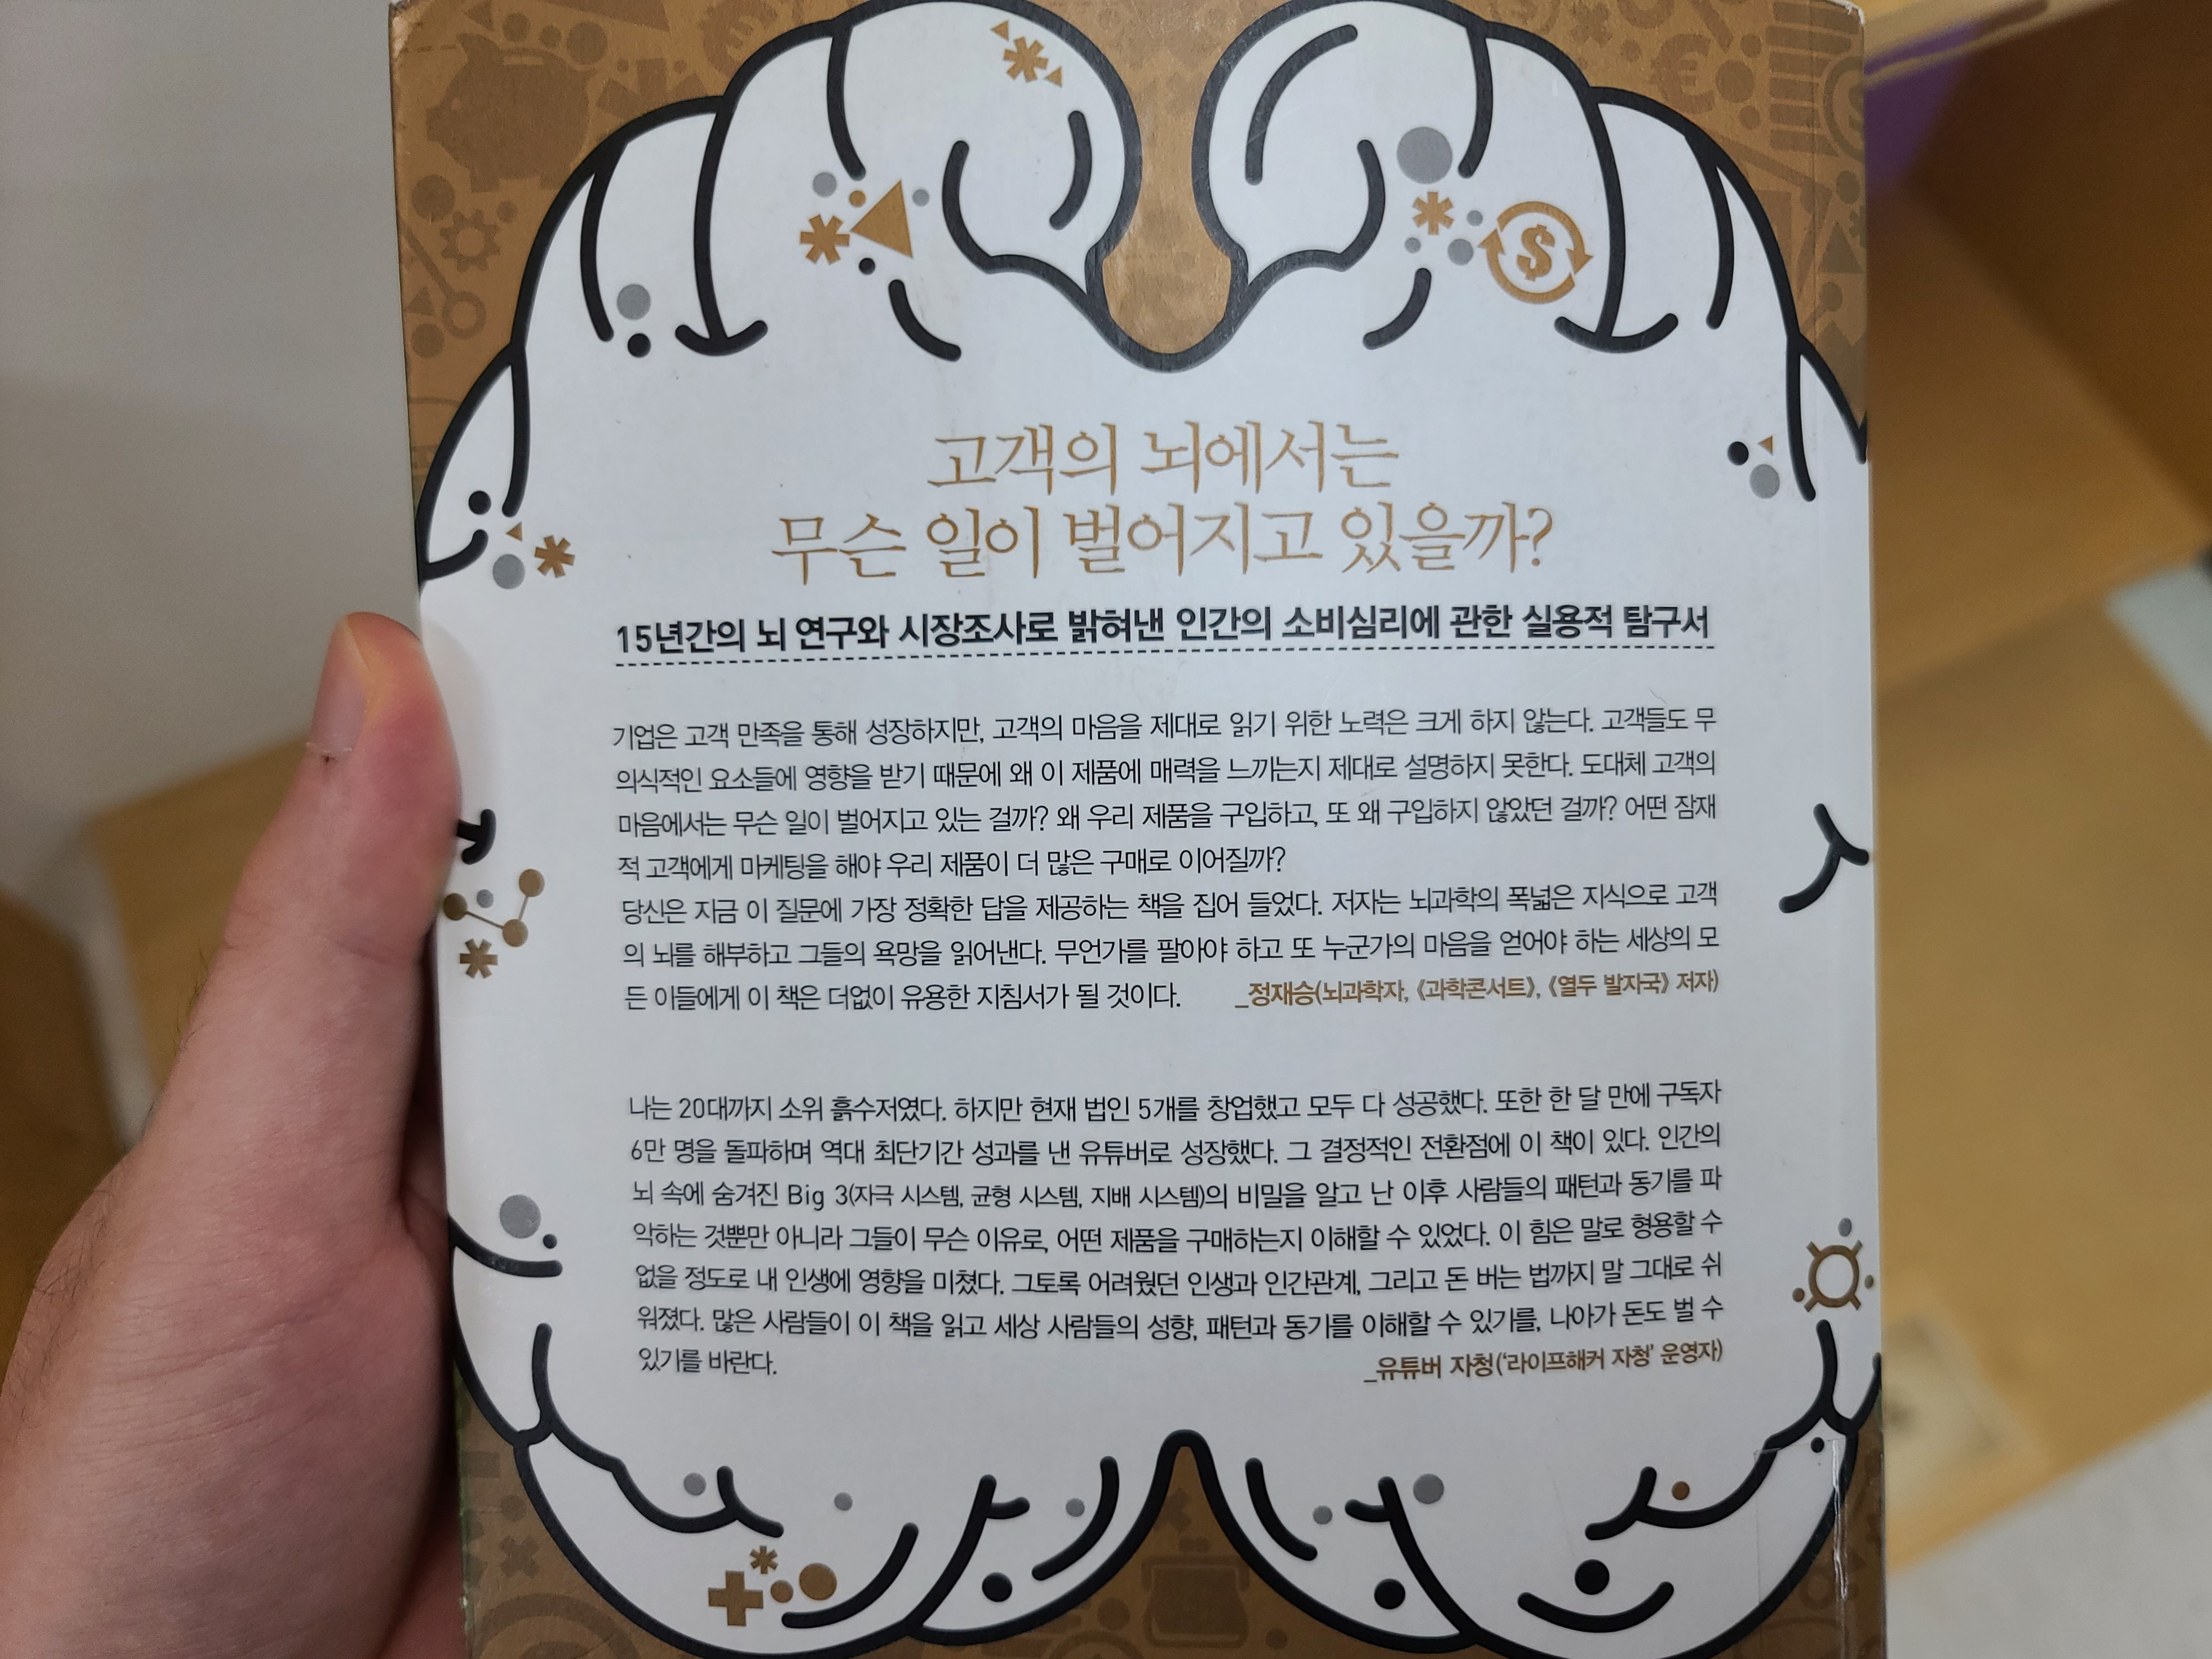 고객의 뇌에서는
무슨 일이 벌어지고 있을까?
15년간의 뇌 연구와 시장조사로 밝혀낸 인간의 소비심리에 관한 실용적 탐구서
기업은 고객 만족을 통해 성장하지만, 고객의 마음을 제대로 읽기 위한 노력은 크게 하지 않는다. 고객들도 무
의식적인 요소들에 영향을 받기 때문에 왜 이 제품에 매력을 느끼는지 제대로 설명하지 못한다. 도대체 고객의
마음에서는 무슨 일이 벌어지고 있는 걸까? 왜 우리 제품을 구입하고, 또 왜 구입하지 않았던 걸까? 어떤 잠재
적 고객에게 마케팅을 해야 우리 제품이 더 많은 구매로 이어질까?
당신은 지금 이 질문에 가장 정확한 답을 제공하는 책을 집어 들었다. 저자는 뇌과학의 폭넓은 지식으로 고객
의 뇌를 해부하고 그들의 욕망을 읽어낸다. 무언가를 팔아야 하고 또 누군가의 마음을 얻어야 하는 세상의 모
든 이들에게 이 책은 더없이 유용한 지침서가 될 것이다. _정재승(뇌과학자, 《과학콘서트》, 《열두 발자국》 저자)
나는 20대까지 소위 흙수저였다. 하지만 현재 법인 5개를 창업했고 모두 다 성공했다. 또한 한 달 만에 구독자
6만 명을 돌파하며 역대 최단기간 성과를 낸 유튜버로 성장했다. 그 결정적인 전환점에 이 책이 있다. 인간의
뇌 속에 숨겨진 Big 3(자극 시스템, 균형 시스템, 지배 시스템)의 비밀을 알고 난 이후 사람들의 패턴과 동기를 파
악하는 것뿐만 아니라 그들이 무슨 이유로, 어떤 제품을 구매하는지 이해할 수 있었다. 이 힘은 말로 형용할 수
없을 정도로 내 인생에 영향을 미쳤다. 그토록 어려웠던 인생과 인간관계, 그리고 돈 버는 법까지 말 그대로 쉬
워졌다. 많은 사람들이 이 책을 읽고 세상 사람들의 성향, 패턴과 동기를 이해할 수 있기를, 나아가 돈도 벌 수
있기를 바란다. _유튜버 자청('라이프해커 자청' 운영자)